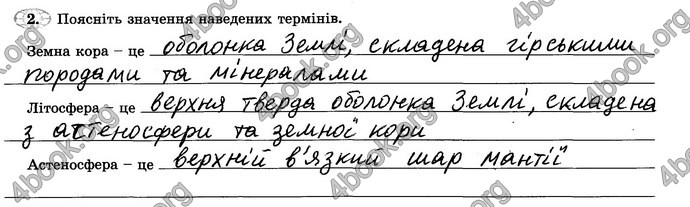 2. Поясніть значення наведених термінів.
Земна кора – це оболонка Землі, складена гірськими
породами та мінералами
Літосфера – це верхня тверда оболонка Землі, складена
з астеносфери та земної кори
Астеносфера – це верхній в'язкий шар мантії
4book.org